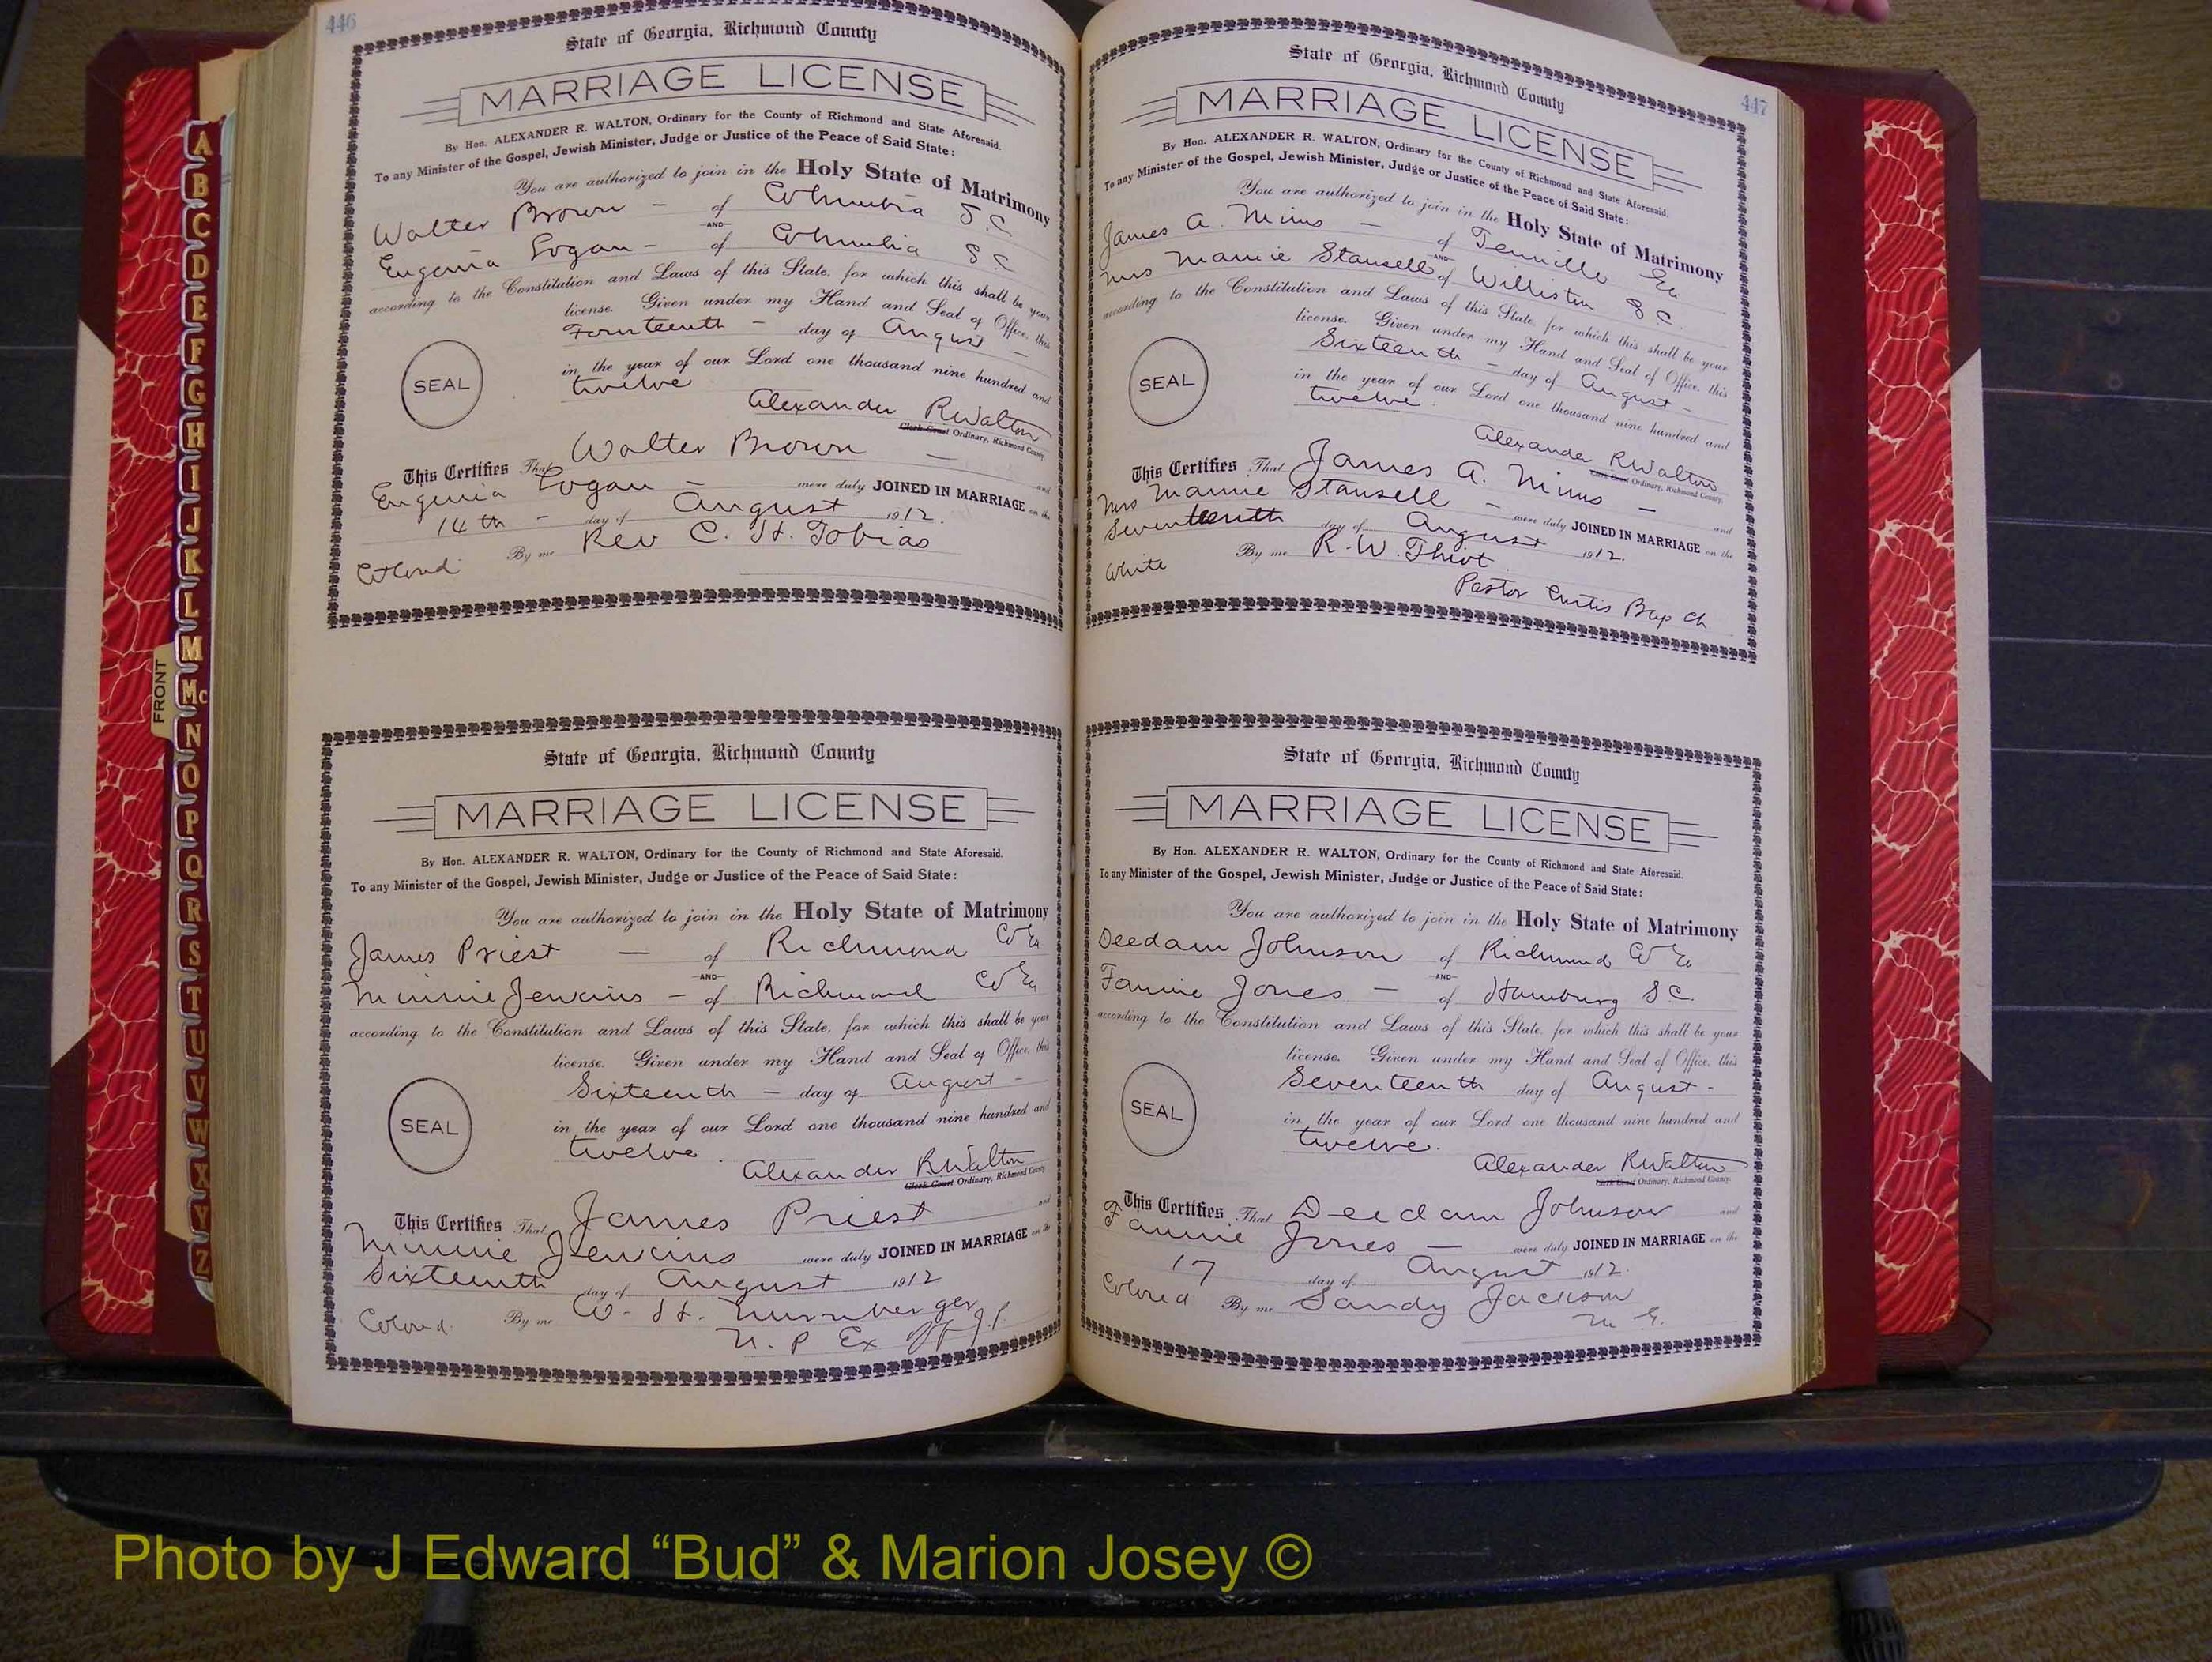 446
State of Georgia, Richmond County
MARRIAGE LICENSE
By Hon. ALEXANDER R. WALTON, Ordinary for the County of Richmond and State Aforesaid.
To any Minister of the Gospel, Jewish Minister, Judge or Justice of the Peace of Said State:
You are authorized to join in the Holy State of Matrimony
Walter Brown — of Columbia S.C.
AND
Eugenia Logan — of Columbia S C
according to the Constitution and Laws of this State, for which this shall be your
license. Given under my Hand and Seal of Office, this
Fourteenth — day of August —
in the year of our Lord one thousand nine hundred and
twelve
SEAL
Alexander R Walton
Clerk Court Ordinary, Richmond County.
This Certifies That Walter Brown — and
Eugenia Logan — were duly JOINED IN MARRIAGE on the
14th — day of August 1912.
Colored By me Rev C. H. Tobias
State of Georgia, Richmond County
MARRIAGE LICENSE
By Hon. ALEXANDER R. WALTON, Ordinary for the County of Richmond and State Aforesaid.
To any Minister of the Gospel, Jewish Minister, Judge or Justice of the Peace of Said State:
You are authorized to join in the Holy State of Matrimony
James Priest — of Richmond Co Ga
AND
Minnie Jenkins — of Richmond Co Ga
according to the Constitution and Laws of this State, for which this shall be your
license. Given under my Hand and Seal of Office, this
Sixteenth — day of August —
in the year of our Lord one thousand nine hundred and
twelve
SEAL
Alexander R Walton
Clerk Court Ordinary, Richmond County
This Certifies That James Priest and
Minnie Jenkins were duly JOINED IN MARRIAGE on the
Sixteenth day of August 1912
Colored By me W. H. Nurnberger
N. P Ex Off J.P.
447
State of Georgia, Richmond County
MARRIAGE LICENSE
By Hon. ALEXANDER R. WALTON, Ordinary for the County of Richmond and State Aforesaid.
To any Minister of the Gospel, Jewish Minister, Judge or Justice of the Peace of Said State:
You are authorized to join in the Holy State of Matrimony
James A. Mims — of Tennille Ga
AND
Mrs Mamie Stansell of Williston S C.
according to the Constitution and Laws of this State, for which this shall be your
license. Given under my Hand and Seal of Office, this
Sixteenth — day of August —
in the year of our Lord one thousand nine hundred and
twelve.
SEAL
Alexander R Walton
Clerk Court Ordinary, Richmond County.
This Certifies That James A. Mims — and
Mrs Mamie Stansell — were duly JOINED IN MARRIAGE on the
Seventeenth day of August 1912.
White By me R. W. Thiot
Pastor Curtis Bap Ch
State of Georgia, Richmond County
MARRIAGE LICENSE
By Hon. ALEXANDER R. WALTON, Ordinary for the County of Richmond and State Aforesaid.
To any Minister of the Gospel, Jewish Minister, Judge or Justice of the Peace of Said State:
You are authorized to join in the Holy State of Matrimony
Deedam Johnson of Richmond Co Ga
AND
Fannie Jones — of Hamburg S C.
according to the Constitution and Laws of this State, for which this shall be your
license. Given under my Hand and Seal of Office, this
Seventeenth day of August —
in the year of our Lord one thousand nine hundred and
twelve.
SEAL
Alexander R Walton
Clerk Court Ordinary, Richmond County.
This Certifies That Deedam Johnson and
Fannie Jones — were duly JOINED IN MARRIAGE on the
17 day of August 1912.
Colored By me Sandy Jackson
M G.
A
B
C
D
E
F
G
H
I
J
K
L
M
Mc
N
O
P
Q
R
S
T
U
V
W
X
Y
Z
FRONT
Photo by J Edward “Bud” & Marion Josey ©